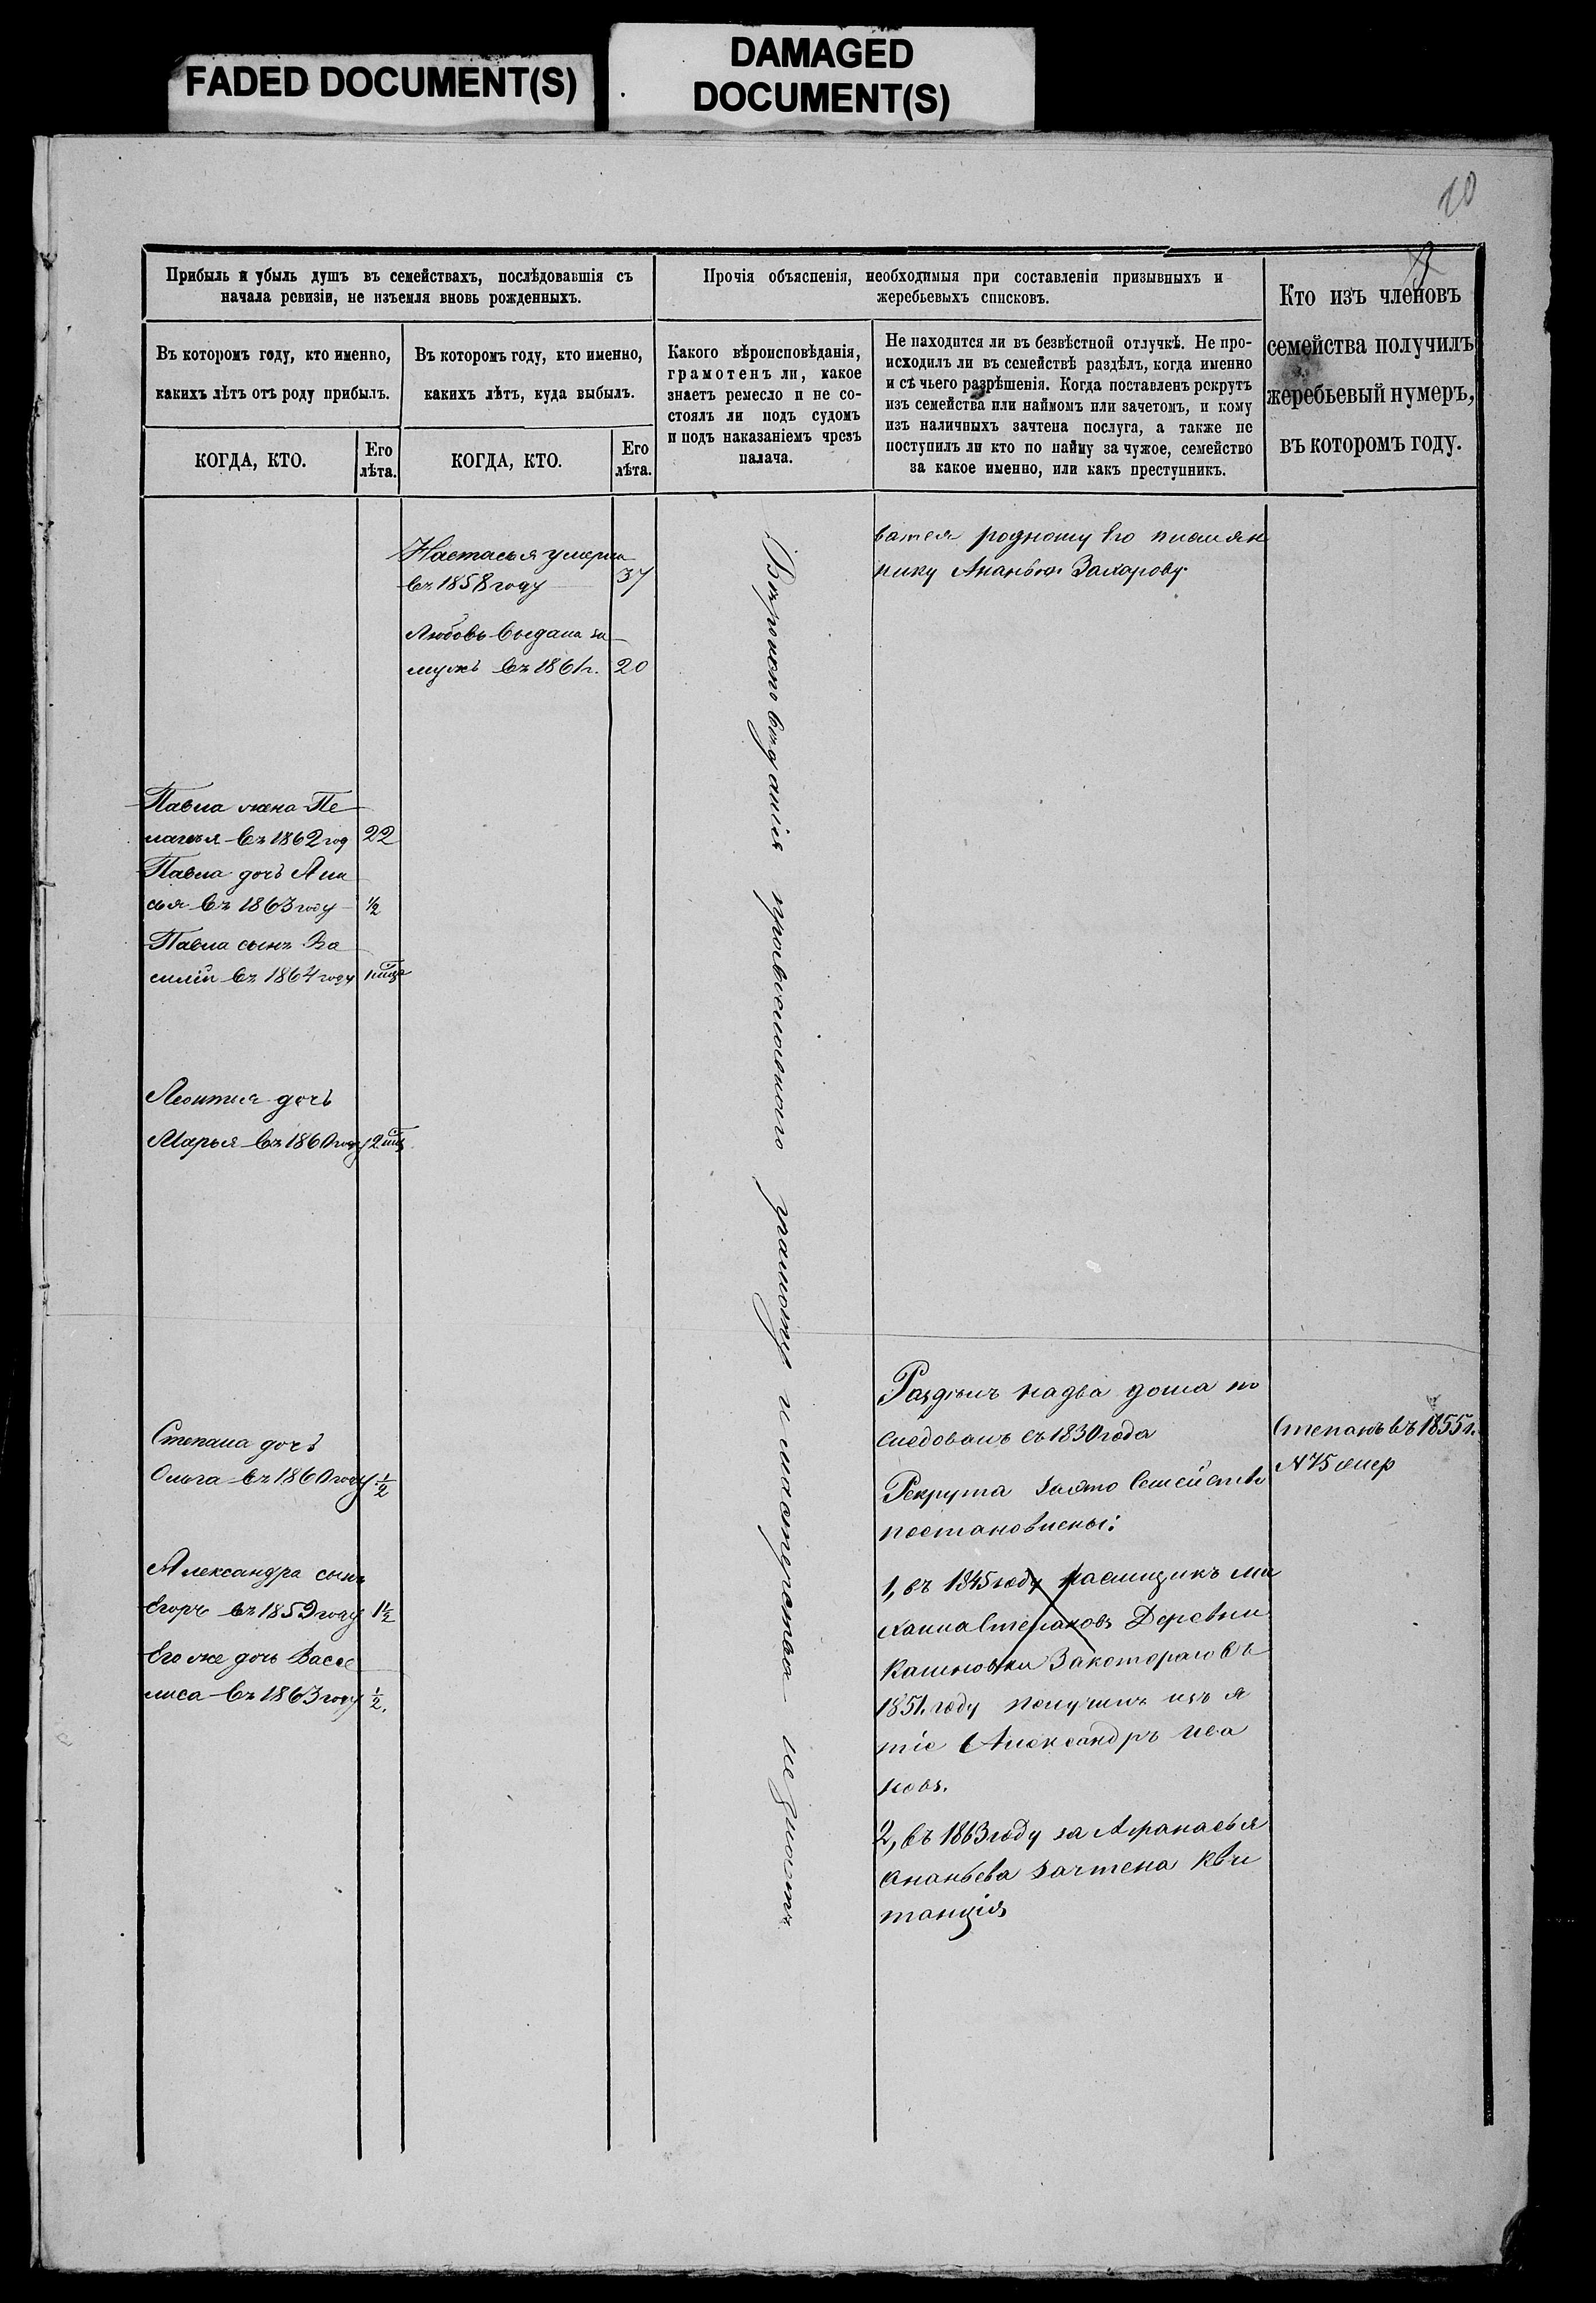 FADED DOCUMENT(S)
DAMAGED
DOCUMENT(S)
10
Прибыль и убыль душъ въ семействахъ, послѣдовавшія съ
начала ревизіи, не изъемля вновь рожденныхъ.
Въ которомъ году, кто именно,
какихъ лѣтъ отъ роду прибылъ.
КОГДА, КТО.
Его
лѣта.
Въ которомъ году, кто именно,
какихъ лѣтъ, куда выбылъ.
КОГДА, КТО.
Его
лѣта.
Прочія объясненія, необходимыя при составленіи призывныхъ и
жеребьевыхъ списковъ.
Какого вѣроисповѣданія,
грамотенъ ли, какое
знаетъ ремесло и не со-
стоялъ ли подъ судомъ
и подъ наказаніемъ чрезъ
палача.
Не находится ли въ безвѣстной отлучкѣ. Не про-
исходилъ ли въ семействѣ раздѣлъ, когда именно
и съ чьего разрѣшенія. Когда поставленъ рекрутъ
изъ семейства или наймомъ или зачетомъ, и кому
изъ наличныхъ зачтена послуга, а также не
поступилъ ли кто по найму за чужое, семейство
за какое именно, или какъ преступникъ.
Кто изъ членовъ
семейства получилъ
жеребьевый нумеръ,
въ которомъ году.
Настасья умерла
въ 1858 году 37
Любовь выдана за
мужъ въ 1861 г. 20
Павла жена Пе
лагея въ 1862 год 22
Павла дочь Ани
сья въ 1863 году ½
Павла сынъ Ва
силій въ 1864 году
Леонтия дочь
Марья въ 1860 году
Степана дочь
Ольга въ 1860 году ½
Александра сынъ
Егоръ въ 1859 году 1½
Его же дочь Васе
лиса въ 1863 году ½.
Вѣроисповѣданія православного грамоту и мастерства не знаютъ
ватся родному его племян
нику Ананью Захарову
Раздѣлъ на два дома по
следовалъ съ 1830 года
Рекрута заэто семейство
постановлены:
1, въ 1845 году наемщикъ Ми
хаила Степановъ Деревни
Калиновки Закотораго въ
1851. году получилъ изъя
тіе Александръ Ива
новъ.
2, въ 1863 году за Афанасья
Ананьева зачтена кви
танція
Степанъ въ 1855 г.
№ 75